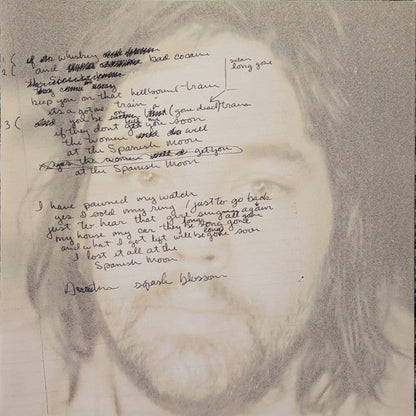 1 ( if whiskey
2 ( and bad cocaine
long gone
keep you on that hellbound train
its a gone train
3 ( you be (you dead) train
if they dont get you soon
the women well
at the Spanish Moon
the women get you
at the Spanish Moon
I have pawned my watch
yes I sold my ring / just to go back
just to hear that girl sing again
my house my car they be long gone
and what I got left will be gone soon
I lost it all at the
Spanish Moon
squash blossom